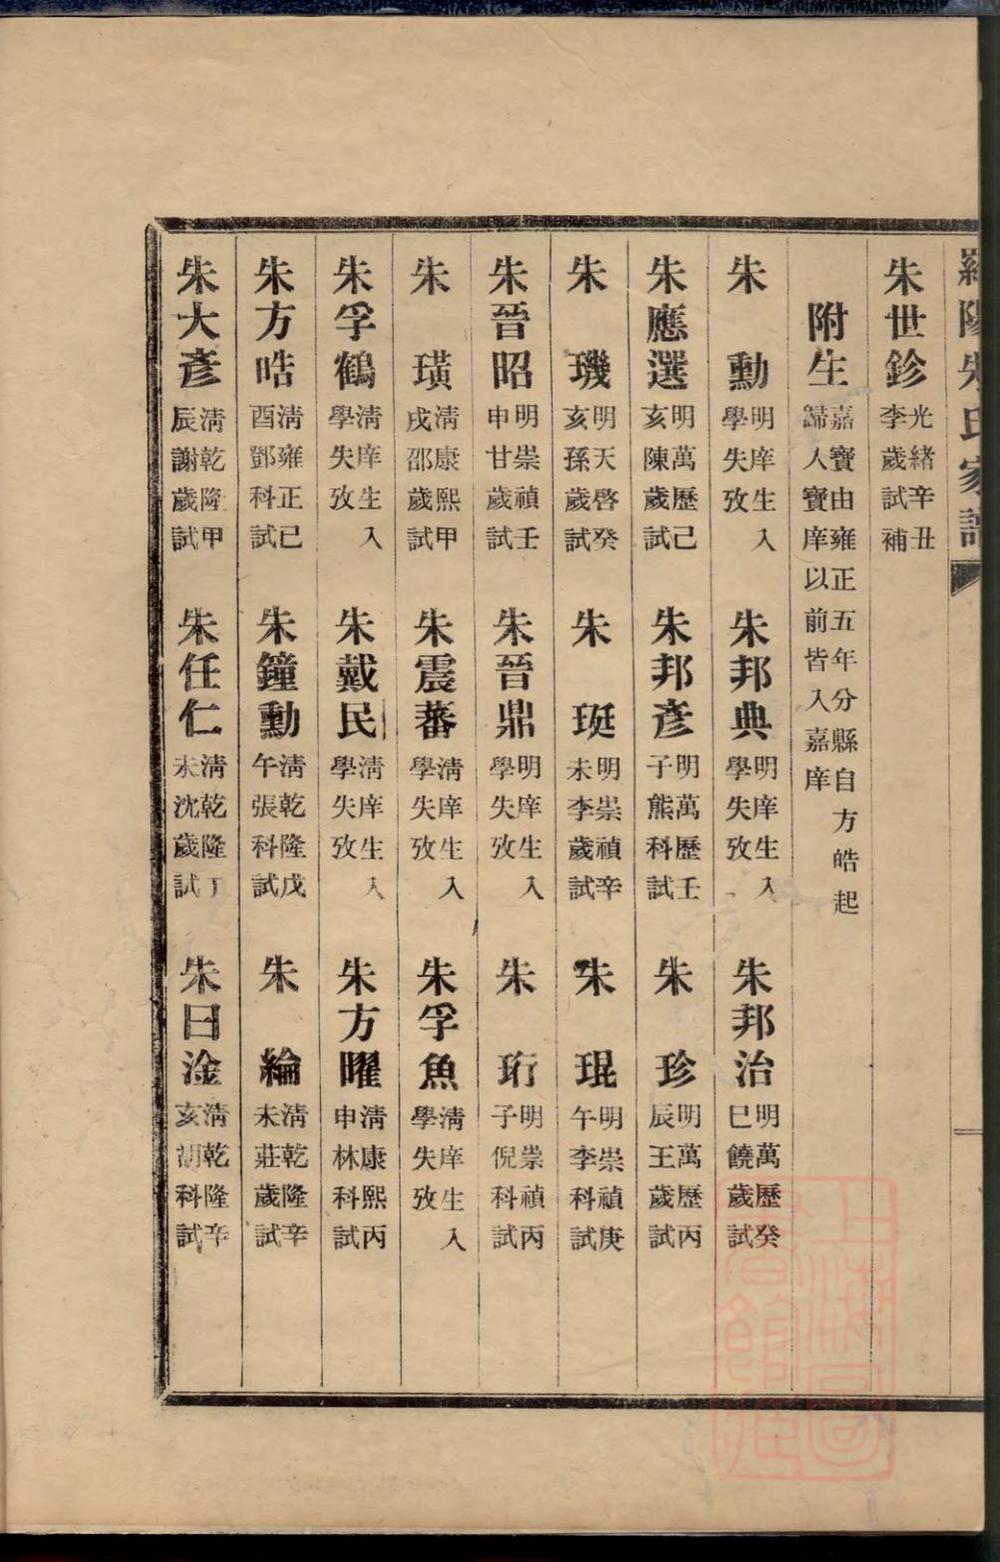 羅陽朱氏家譜
朱世鉁 光緒辛丑李歲試補
附生 嘉寶由雍正五年分縣自方皓起歸人寶庠以前皆入嘉庠
朱勳 明庠生入學失攷 朱邦典 明庠生入學失攷 朱邦治 明萬歷癸巳饒歲試
朱應選 明萬歷己亥陳歲試 朱邦彥 明萬歷壬子熊科試 朱珍 明萬歷丙辰王歲試
朱璣 明天啓癸亥孫歲試 朱珽 明崇禎辛未李歲試 朱琨 明崇禎庚午李科試
朱晉昭 明崇禎壬申甘歲試 朱晉鼎 明庠生入學失攷 朱珩 明崇禎丙子倪科試
朱璜 清康熙甲戌邵歲試 朱震蕃 清庠生入學失攷 朱孚魚 清庠生入學失攷
朱孚鶴 清庠生入學失攷 朱戴民 清庠生入學失攷 朱方曜 清康熙丙申林科試
朱方晧 清雍正己酉鄧科試 朱鐘勳 清乾隆戊午張科試 朱綸 清乾隆辛未莊歲試
朱大彥 清乾隆甲辰謝歲試 朱任仁 清乾隆丁未沈歲試 朱日淦 清乾隆辛亥胡科試